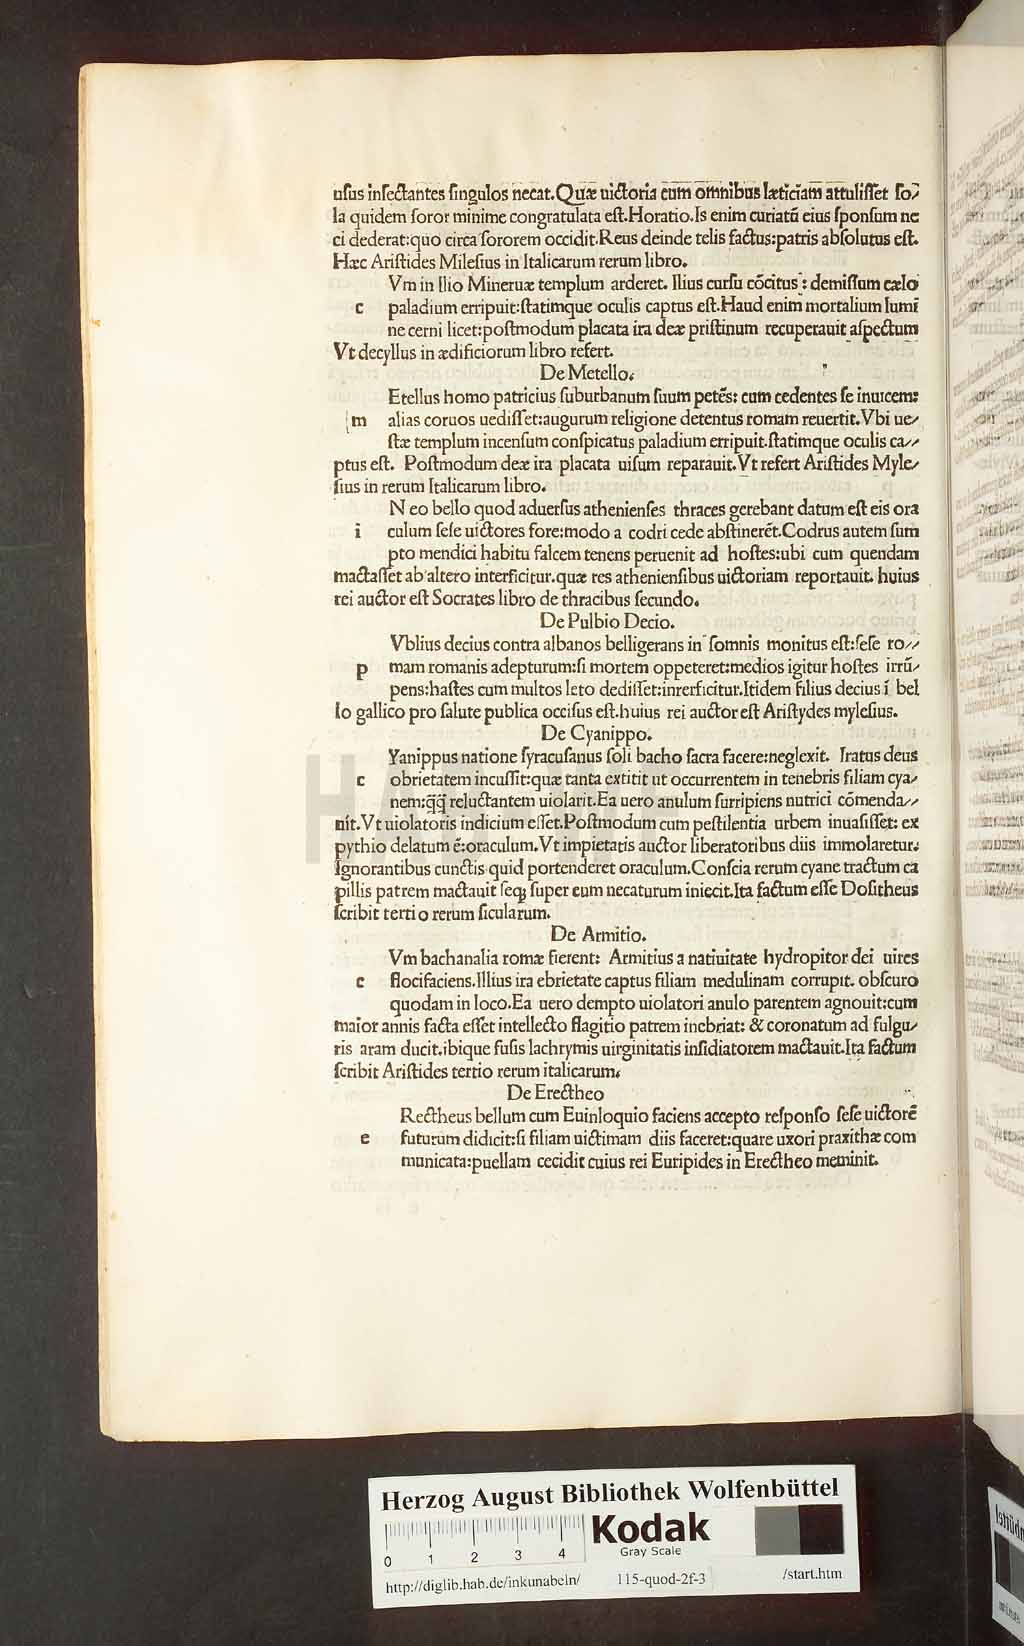 uſus inſectantes ſingulos necat.Quæ uictoria cum omnibus læticiam attuliſſet ſo/
la quidem ſoror minime congratulata eſt.Horatio.Is enim curiatũ eius ſponſum ne
ci dederat:quo circa ſororem occidit.Reus deinde telis factus:patris abſolutus eſt.
Hæc Ariſtides Mileſius in Italicarum rerum libro.
Vm in Ilio Mineruæ templum arderet. Ilius curſu cõcitus : demiſſum cælo
c paladium erripuit:ſtatimque oculis captus eſt.Haud enim mortalium lumĩ
ne cerni licet:poſtmodum placata ira deæ priſtinum recuperauit aſpectum
Vt decyllus in ædificiorum libro refert.
De Metello.
Etellus homo patricius ſuburbanum ſuum petẽs: cum cedentes ſe inuicem:
m alias coruos uediſſet:augurum religione detentus romam reuertit.Vbi ue/
ſtæ templum incenſum conſpicatus paladium erripuit.ſtatimque oculis ca//
ptus eſt. Poſtmodum deæ ira placata uiſum reparauit.Vt refert Ariſtides Myle/
ſius in rerum Italicarum libro.
N eo bello quod aduerſus athenienſes thraces gerebant datum eſt eis ora
i culum ſeſe uictores fore:modo a codri cede abſtinerẽt.Codrus autem ſum
pto mendici habitu falcem tenens peruenit ad hoſtes:ubi cum quendam
mactaſſet ab altero interficitur.quæ res athenienſibus uictoriam reportauit. huius
rei auctor eſt Socrates libro de thracibus ſecundo.
De Pulbio Decio.
Vblius decius contra albanos belligerans in ſomnis monitus eſt:ſeſe ro//
p mam romanis adepturum:ſi mortem oppeteret:medios igitur hoſtes irrũ/
pens:haſtes cum multos leto dediſſet:inrerficitur.Itidem filius decius ĩ bel
lo gallico pro ſalute publica occiſus eſt.huius rei auctor eſt Ariſtydes myleſius.
De Cyanippo.
Yanippus natione ſyracuſanus ſoli bacho ſacra facere:neglexit. Iratus deus
c obrietatem incuſſit:quæ tanta extitit ut occurrentem in tenebris filiam cya/
nem:q̃q̃ reluctantem uiolarit.Ea uero anulum ſurripiens nutrici cõmenda//
nit.Vt uiolatoris indicium eſſet.Poſtmodum cum peſtilentia urbem inuaſiſſet: ex
pythio delatum ẽ:oraculum.Vt impietatis auctor liberatoribus diis immolaretur:
Ignorantibus cunctis quid portenderet oraculum.Conſcia rerum cyane tractum ca
pillis patrem mactauit ſeq; ſuper eum necaturum iniecit.Ita factum eſſe Doſitheus
ſcribit terti o rerum ſicularum.
De Armitio.
Vm bachanalia romæ fierent: Armitius a natiuitate hydropitor dei uires
c flocifaciens.Illius ira ebrietate captus filiam medulinam corrupit. obſcuro
quodam in loco.Ea uero dempto uiolatori anulo parentem agnouit:cum
maior annis facta eſſet intellecto flagitio patrem inebriat: & coronatum ad fulgu/
ris aram ducit.ibique fuſis lachrymis uirginitatis inſidiatorem mactauit.Ita factum
ſcribit Ariſtides tertio rerum italicarum.
De Erectheo
Rectheus bellum cum Euinloquio faciens accepto reſponſo ſeſe uictorẽ
e futurum didicit:ſi filiam uictimam diis faceret:quare uxori praxithæ com
municata:puellam cecidit cuius rei Euripides in Erectheo meminit.
HAB WF
Herzog August Bibliothek Wolfenbüttel
0 1 2 3 4
Kodak
Gray Scale
http://diglib.hab.de/inkunabeln/ 115-quod-2f-3 /start.htm